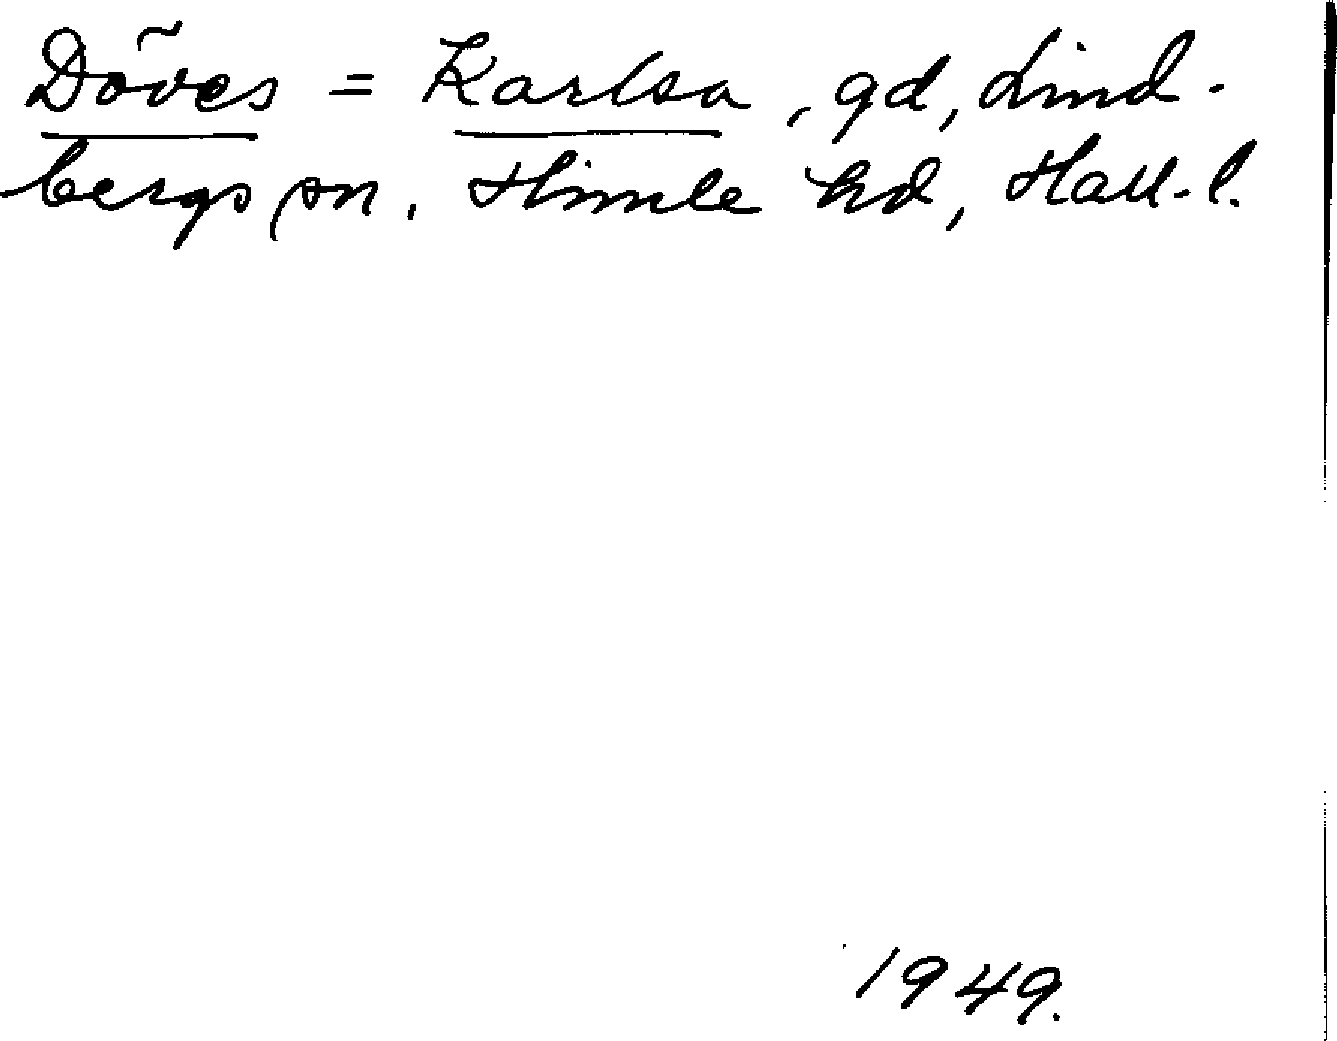 Döves = Karlsa, gd, Lind-
bergs sn. Himle hd, Hall. l.
1949.